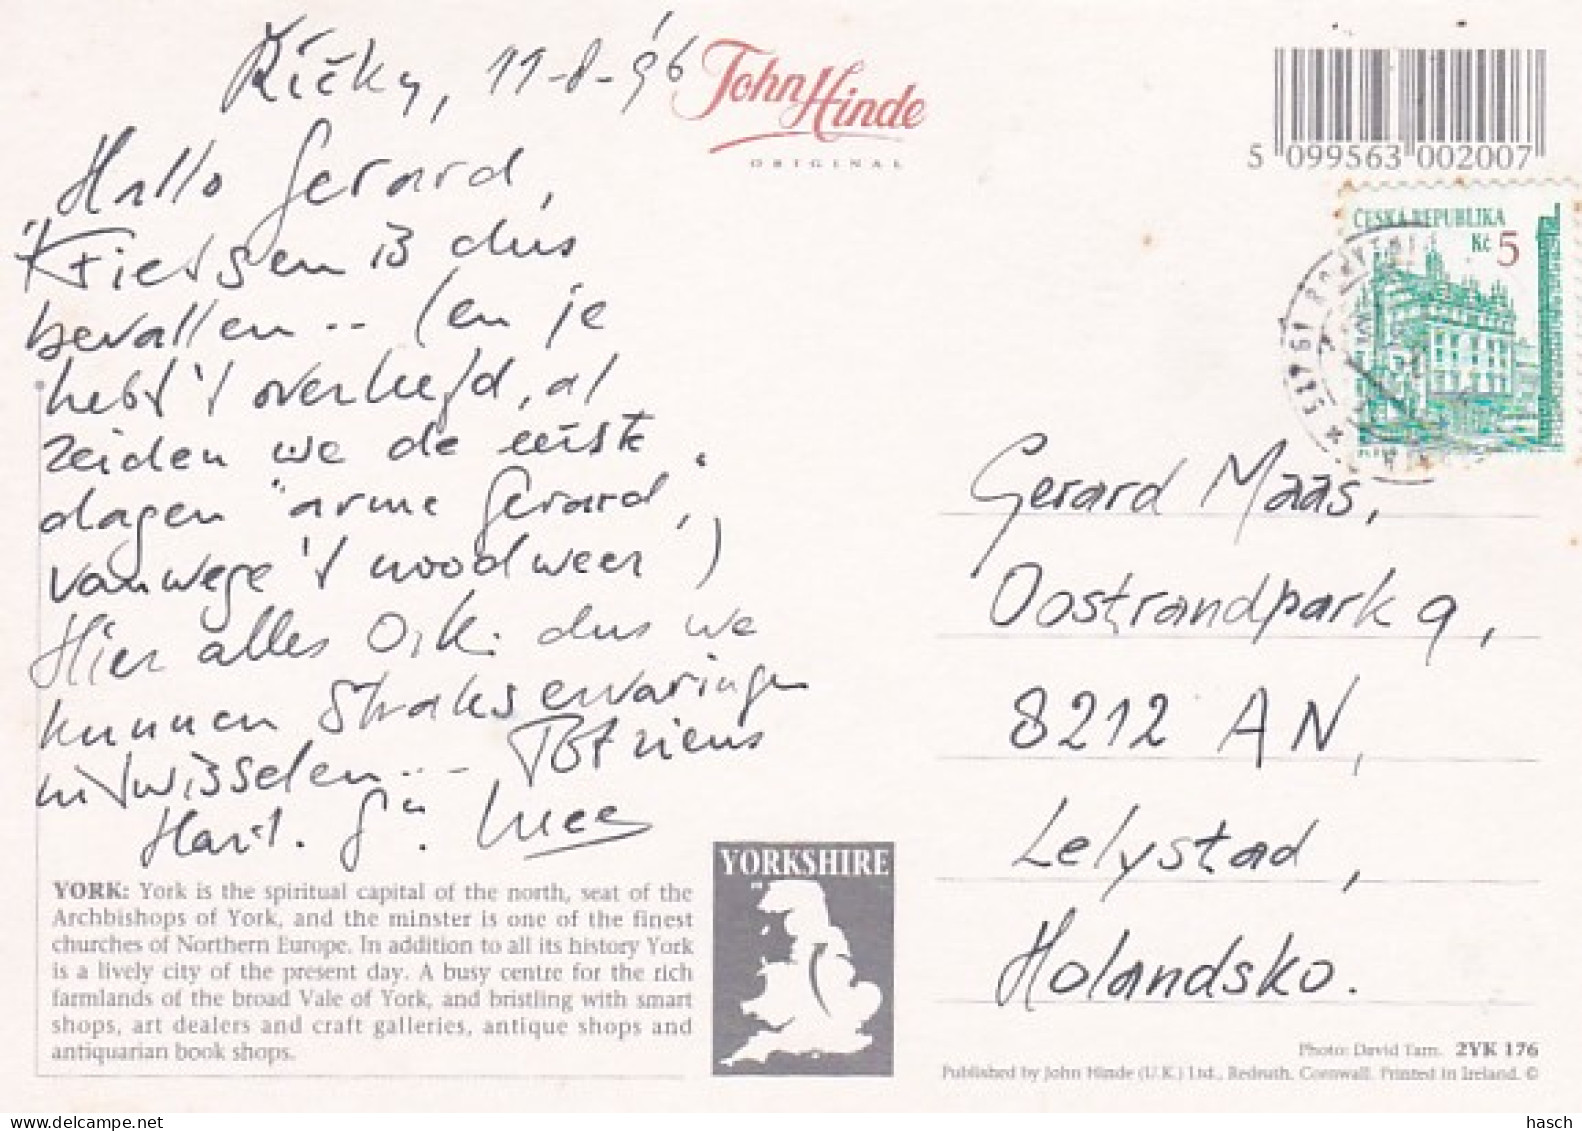 Říčky, 11-8-'96
Hallo Gerard,
Fietsen is dus
bevallen .. (en je
hebt 't overleefd, al
zeiden we de eerste
dagen "arme Gerard,"
vanwege 't noodweer)
Hier alles O.K. dus we
kunnen straks ervaringen
uitwisselen... Tot ziens
Hart. Gr.
John Hinde
ORIGINAL
5 099563 002007
ČESKÁ REPUBLIKA
Kč 5
Gerard Maas,
Oostrandpark 9,
8212 AN,
Lelystad,
Holandsko.
YORKSHIRE
YORK: York is the spiritual capital of the north, seat of the
Archbishops of York, and the minster is one of the finest
churches of Northern Europe. In addition to all its history York
is a lively city of the present day. A busy centre for the rich
farmlands of the broad Vale of York, and bristling with smart
shops, art dealers and craft galleries, antique shops and
antiquarian book shops.
Photo: David Tarn. 2YK 176
Published by John Hinde (U.K.) Ltd., Redruth, Cornwall. Printed in Ireland. ©
delcampe.net
Hasch